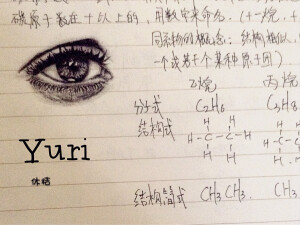 碳原子数在十以上的，用数字来命名.(十一烷，十
同系物的概念：结构相似，
一个或若干个某种原子团)
乙烷 丙烷
分子式 C₂H₆ C₃H₈
结构式 H H H
H-C-C-H H-C-
H H H
结构简式 CH₃ CH₃. CH₃
Yuri
体结